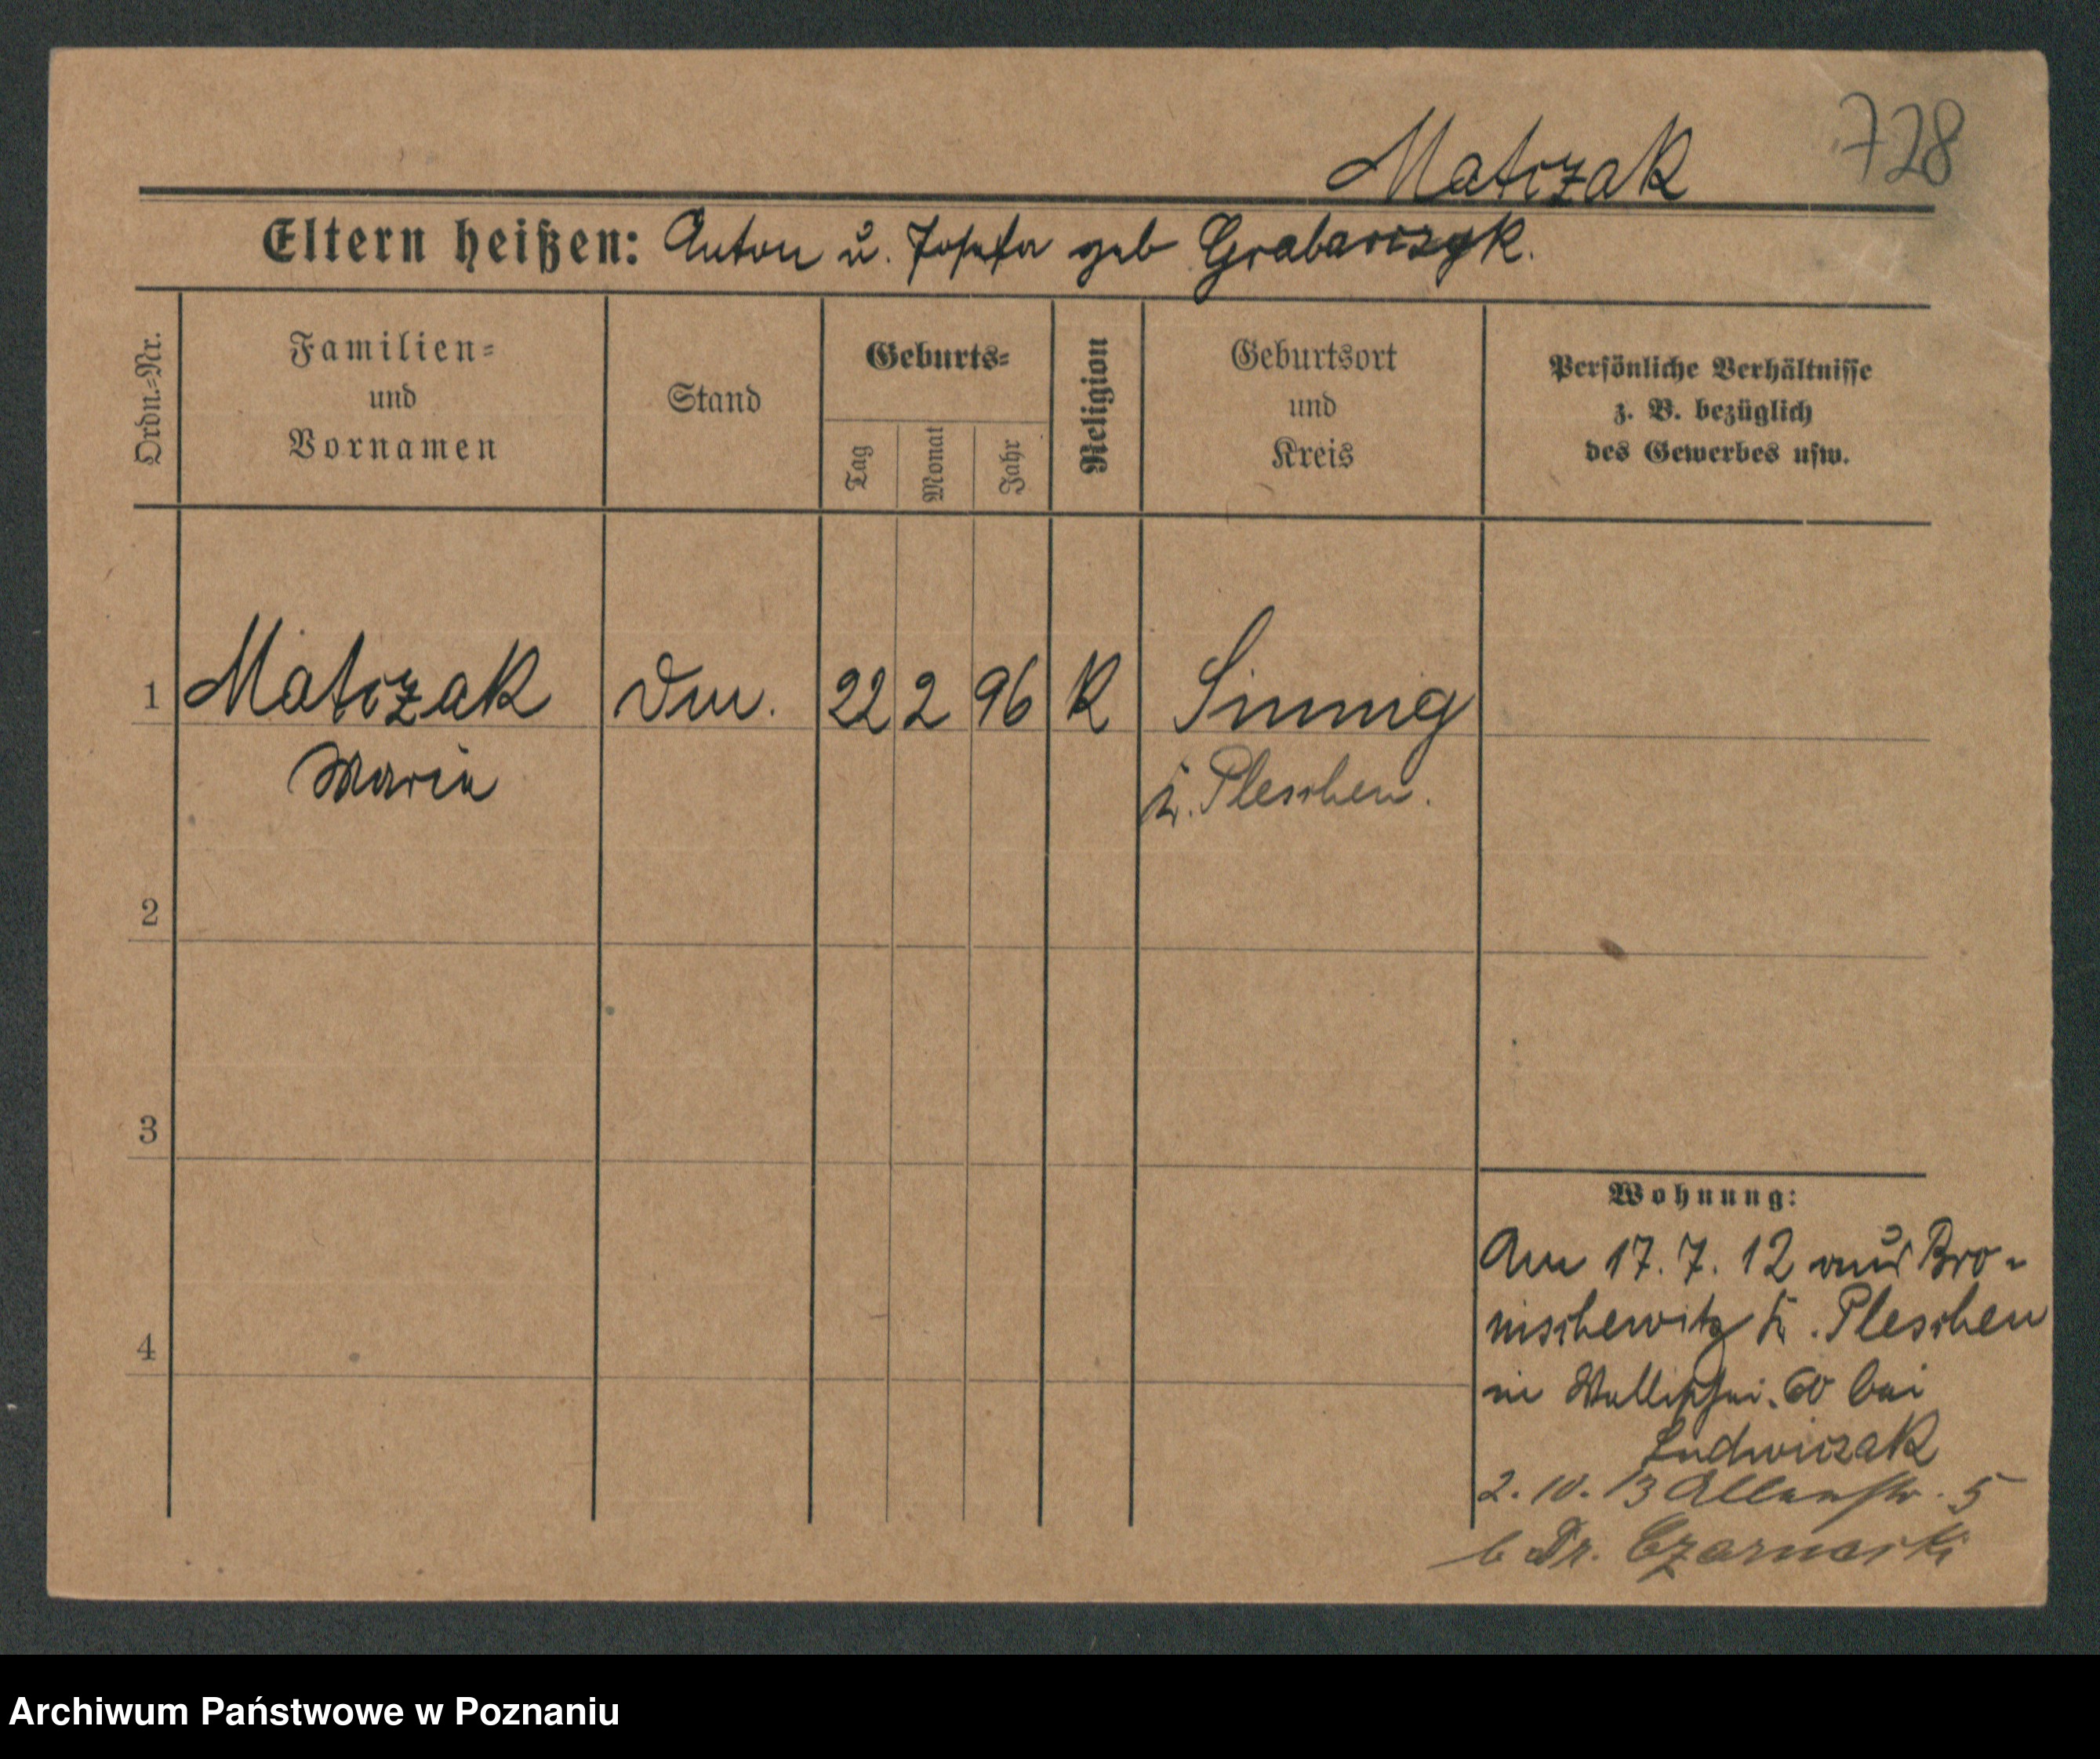 728
Matczak
Eltern heißen: Anton u. Josefa geb Grabarczyk.
Ordn.=Nr.
Familien=
und
Vornamen
Stand
Geburts=
Tag
Monat
Jahr
Religion
Geburtsort
und
Kreis
Persönliche Verhältnisse
z. B. bezüglich
des Gewerbes usw.
1 Matczak 22 2 96 K
Maria
Pleschen.
2
3
4
Wohnung:
Am 17.7.12 aus Bro-
nischewitz K. Pleschen
in 60 bei
Ludwiczak
2.10.13 5
b Dr. Czarnecki
Archiwum Państwowe w Poznaniu